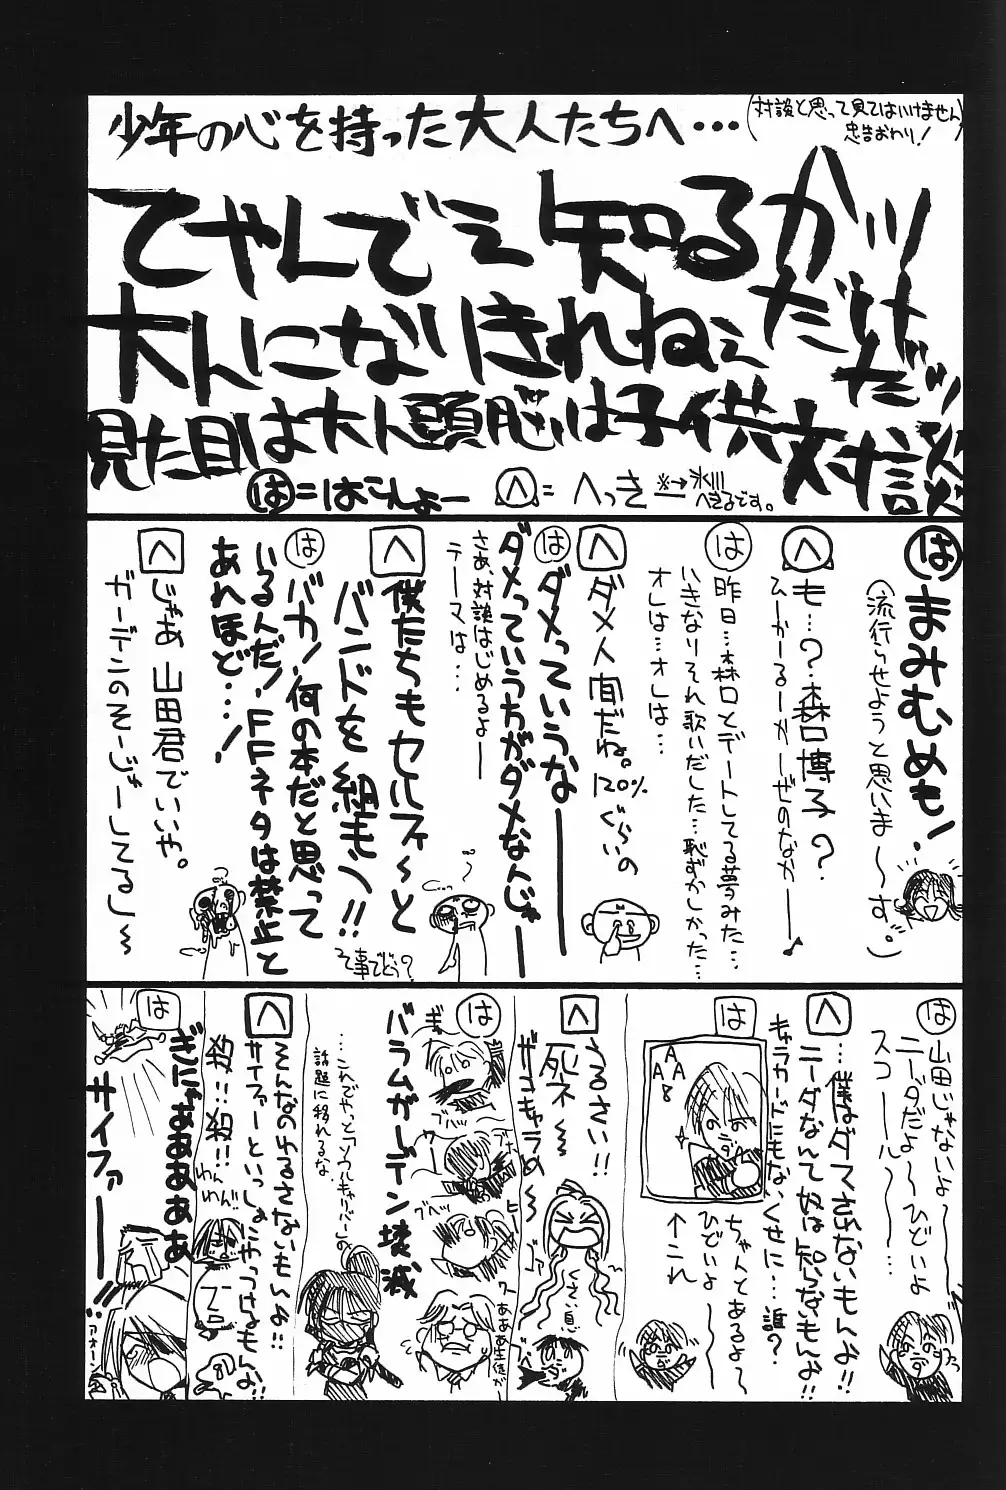 少年の心を持った大人たちへ・・・
(対談と思って見てはいけません
忠告おわり!)
てやんでぇ知るかッ
大人になりきれねぇ
だけだッ
見た目は大人頭脳は子供対談
は=はこんよー
へ=へっき
※→氷川
へきるです。
は まみむめも!
(流行らせようと思いま〜す。)
へ も…?森口博子?
ひーかーるーかーぜのなかー♪
は 昨日…森口とデートしてる夢みた…
いきなりそれ歌いだした…恥ずかしかった…
オレは…オレは…
へ ダメ人間だね。120%ぐらいの
は ダメっていうなーー
ダメっていう方がダメなんじゃーー
さあ、対談はじめるよー
テーマは…
へ 僕たちもセルフィ〜と
バンドを組もう!!
て事でどう?
は バカ!何の本だと思って
いるんだ!FFネタは禁止と
あれほど…!
へ じゃあ山田君でいいや。
ガーデンのそーじゃーしてるし〜
は 山田じゃないよ〜
ニーダだよ〜ひどいよ
スコール〜…
へ …僕はダマされないもんよ!!
ニーダなんて奴は知らないもんよ!!
キャラカードにもないくせに…誰?
は
A
A A
8
↑これ
ちゃんとあるよ〜
ひどいよ〜
へ うるさい!!
死ネ〜
ザコキャラめ〜
くさい息
は バラムガーデン壊滅
ぎゃー
ブヘッ
ブヘッ
ヒーッ
わあああ生徒が
…これでやっとソウルキャリバーの
話題に移れるな
へ そんなのゆるさないもんよ!!
サイファーといっしょにやっつけるもんよ!!
殺…!!殺…!!
わんわんっ
は ぎにゃぁぁぁぁぁ
サイファー――!!
アオーン